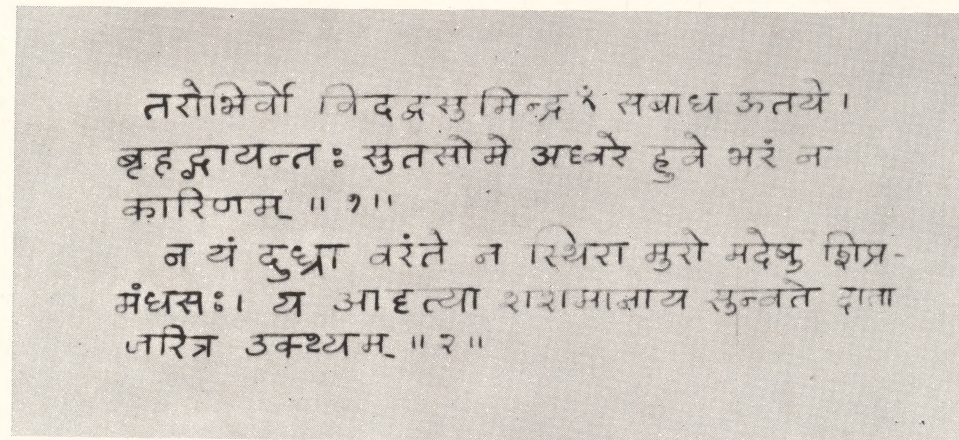 तरोभिर्वो विदद्वसुमिन्द्रꣳ सबाध ऊतये।
बृहद्गायन्तः सुतसोमे अध्वरे हुवे भरं न
कारिणम् ॥ १॥
न यं दुध्रा वरंते न स्थिरा मुरो मदेषु शिप्र-
मंधसः। य आदृत्या शशमानाय सुन्वते दाता
जरित्र उक्थ्यम् ॥ २॥